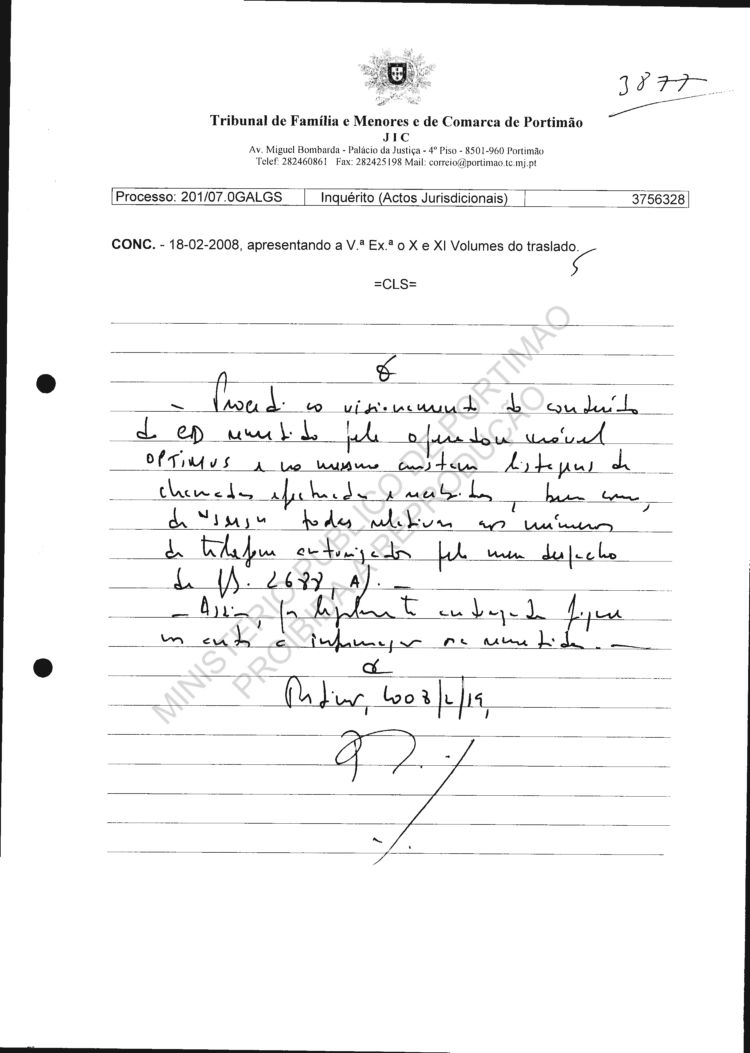 3877
Tribunal de Família e Menores e de Comarca de Portimão
J I C
Av. Miguel Bombarda - Palácio da Justiça - 4º Piso - 8501-960 Portimão
Telef: 282460861 Fax: 282425198 Mail: correio@portimao.tc.mj.pt
Processo: 201/07.0GALGS Inquérito (Actos Jurisdicionais) 3756328
CONC. - 18-02-2008, apresentando a V.ª Ex.ª o X e XI Volumes do traslado.
=CLS=
- Procedi ao visionamento do conteúdo
do CD remetido pela operadora móvel
OPTIMUS e no mesmo existem listagens de
chamadas efectuadas e recebidas, bem como,
de todas relativas aos números
de telefone autorizados pelo meu despacho
de fls. 2688, A). -
- Assim,
a informação ora remetida. -
Portimão, 2008/2/19,
MINISTÉRIO PÚBLICO DE PORTIMÃO
PROIBIDA A REPRODUÇÃO